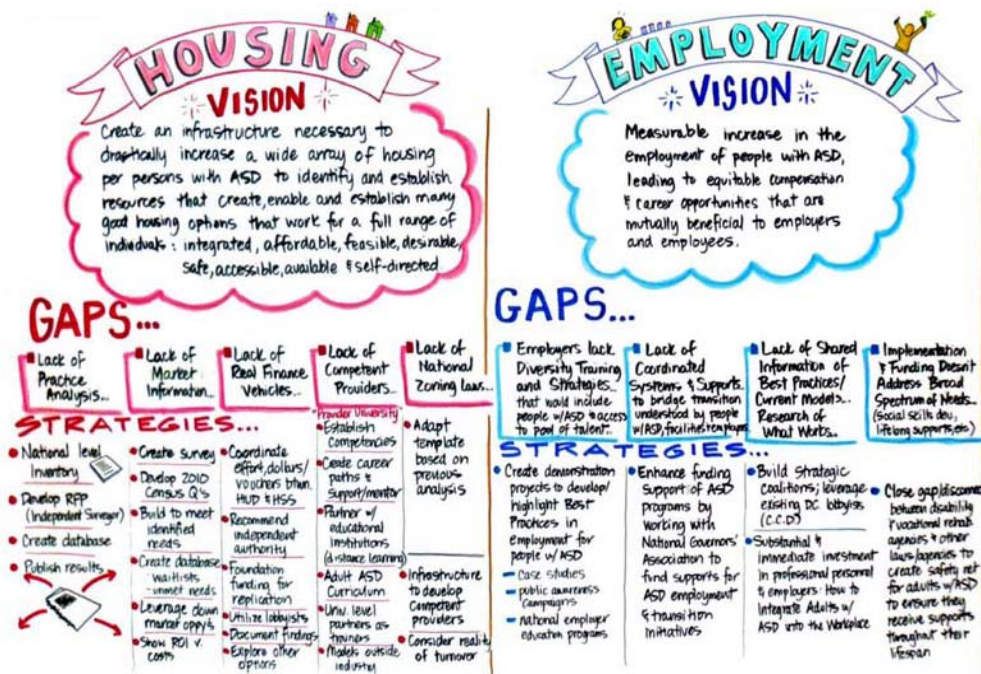 HOUSING
VISION
Create an infrastructure necessary to
drastically increase a wide array of housing
per persons with ASD to identify and establish
resources that create, enable and establish many
good housing options that work for a full range of
individuals: integrated, affordable, feasible, desirable,
safe, accessible, available & self-directed
GAPS...
Lack of
Practice
Analysis...
Lack of
Market
Information...
Lack of
Real Finance
Vehicles...
Lack of
Competent
Providers...
Lack of
National
Zoning Laws...
STRATEGIES...
National level
Inventory
Develop RFP
(Independent Surveyor)
Create database
Publish results
Create survey
Develop 2010
Census Q's
Build to meet
identified
needs
Create database
- waitlists
- unmet needs
Leverage down
market opp'ys
Show ROI v.
costs
Coordinate
effort, dollars/
vouchers btwn.
HUD & HSS
Recommend
independent
authority
Foundation
funding for
replication
Utilize lobbyists
Document findings
Explore other
options
"Provider University"
Establish
Competencies
Create career
paths &
support/mentor
Partner w/
educational
institutions
(distance learning)
Adult ASD
Curriculum
Univ. level
partners as
trainers
Models outside
industry
Adapt
template
based on
previous
analysis
Infrastructure
to develop
Competent
providers
Consider reality
of turnover
EMPLOYMENT
VISION
Measurable increase in the
employment of people with ASD,
leading to equitable compensation
& career opportunities that are
mutually beneficial to employers
and employees.
GAPS...
Employers lack
Diversity Training
and Strategies...
that would include
people w/ASD & access
to pool of talent...
Lack of
Coordinated
Systems & Supports
to bridge transition
understood by people
w/ASD, facilities & employers
Lack of Shared
Information of
Best Practices/
Current Models...
Research of
What Works...
Implementation
& Funding Doesn't
Address Broad
Spectrum of Needs...
(Social skills dev,
lifelong supports, etc)
STRATEGIES...
Create demonstration
projects to develop/
highlight Best
Practices in
employment for
people w/ ASD
- Case studies
- public awareness
Campaigns
- national employer
education programs
Enhance funding
support of ASD
programs by
working with
National Governors'
Association to
find supports for
ASD employment
& transition
Initiatives
Build strategic
Coalitions; leverage
existing DC lobbyists
(C.C.D)
Substantial &
immediate investment
in professional personnel
& employers: How to
Integrate Adults w/
ASD into the Workplace
Close gap/disconnect
between disability
& vocational rehab
agencies & other
laws/agencies to
create safety net
for adults w/ASD
to ensure they
receive supports
throughout their
lifespan